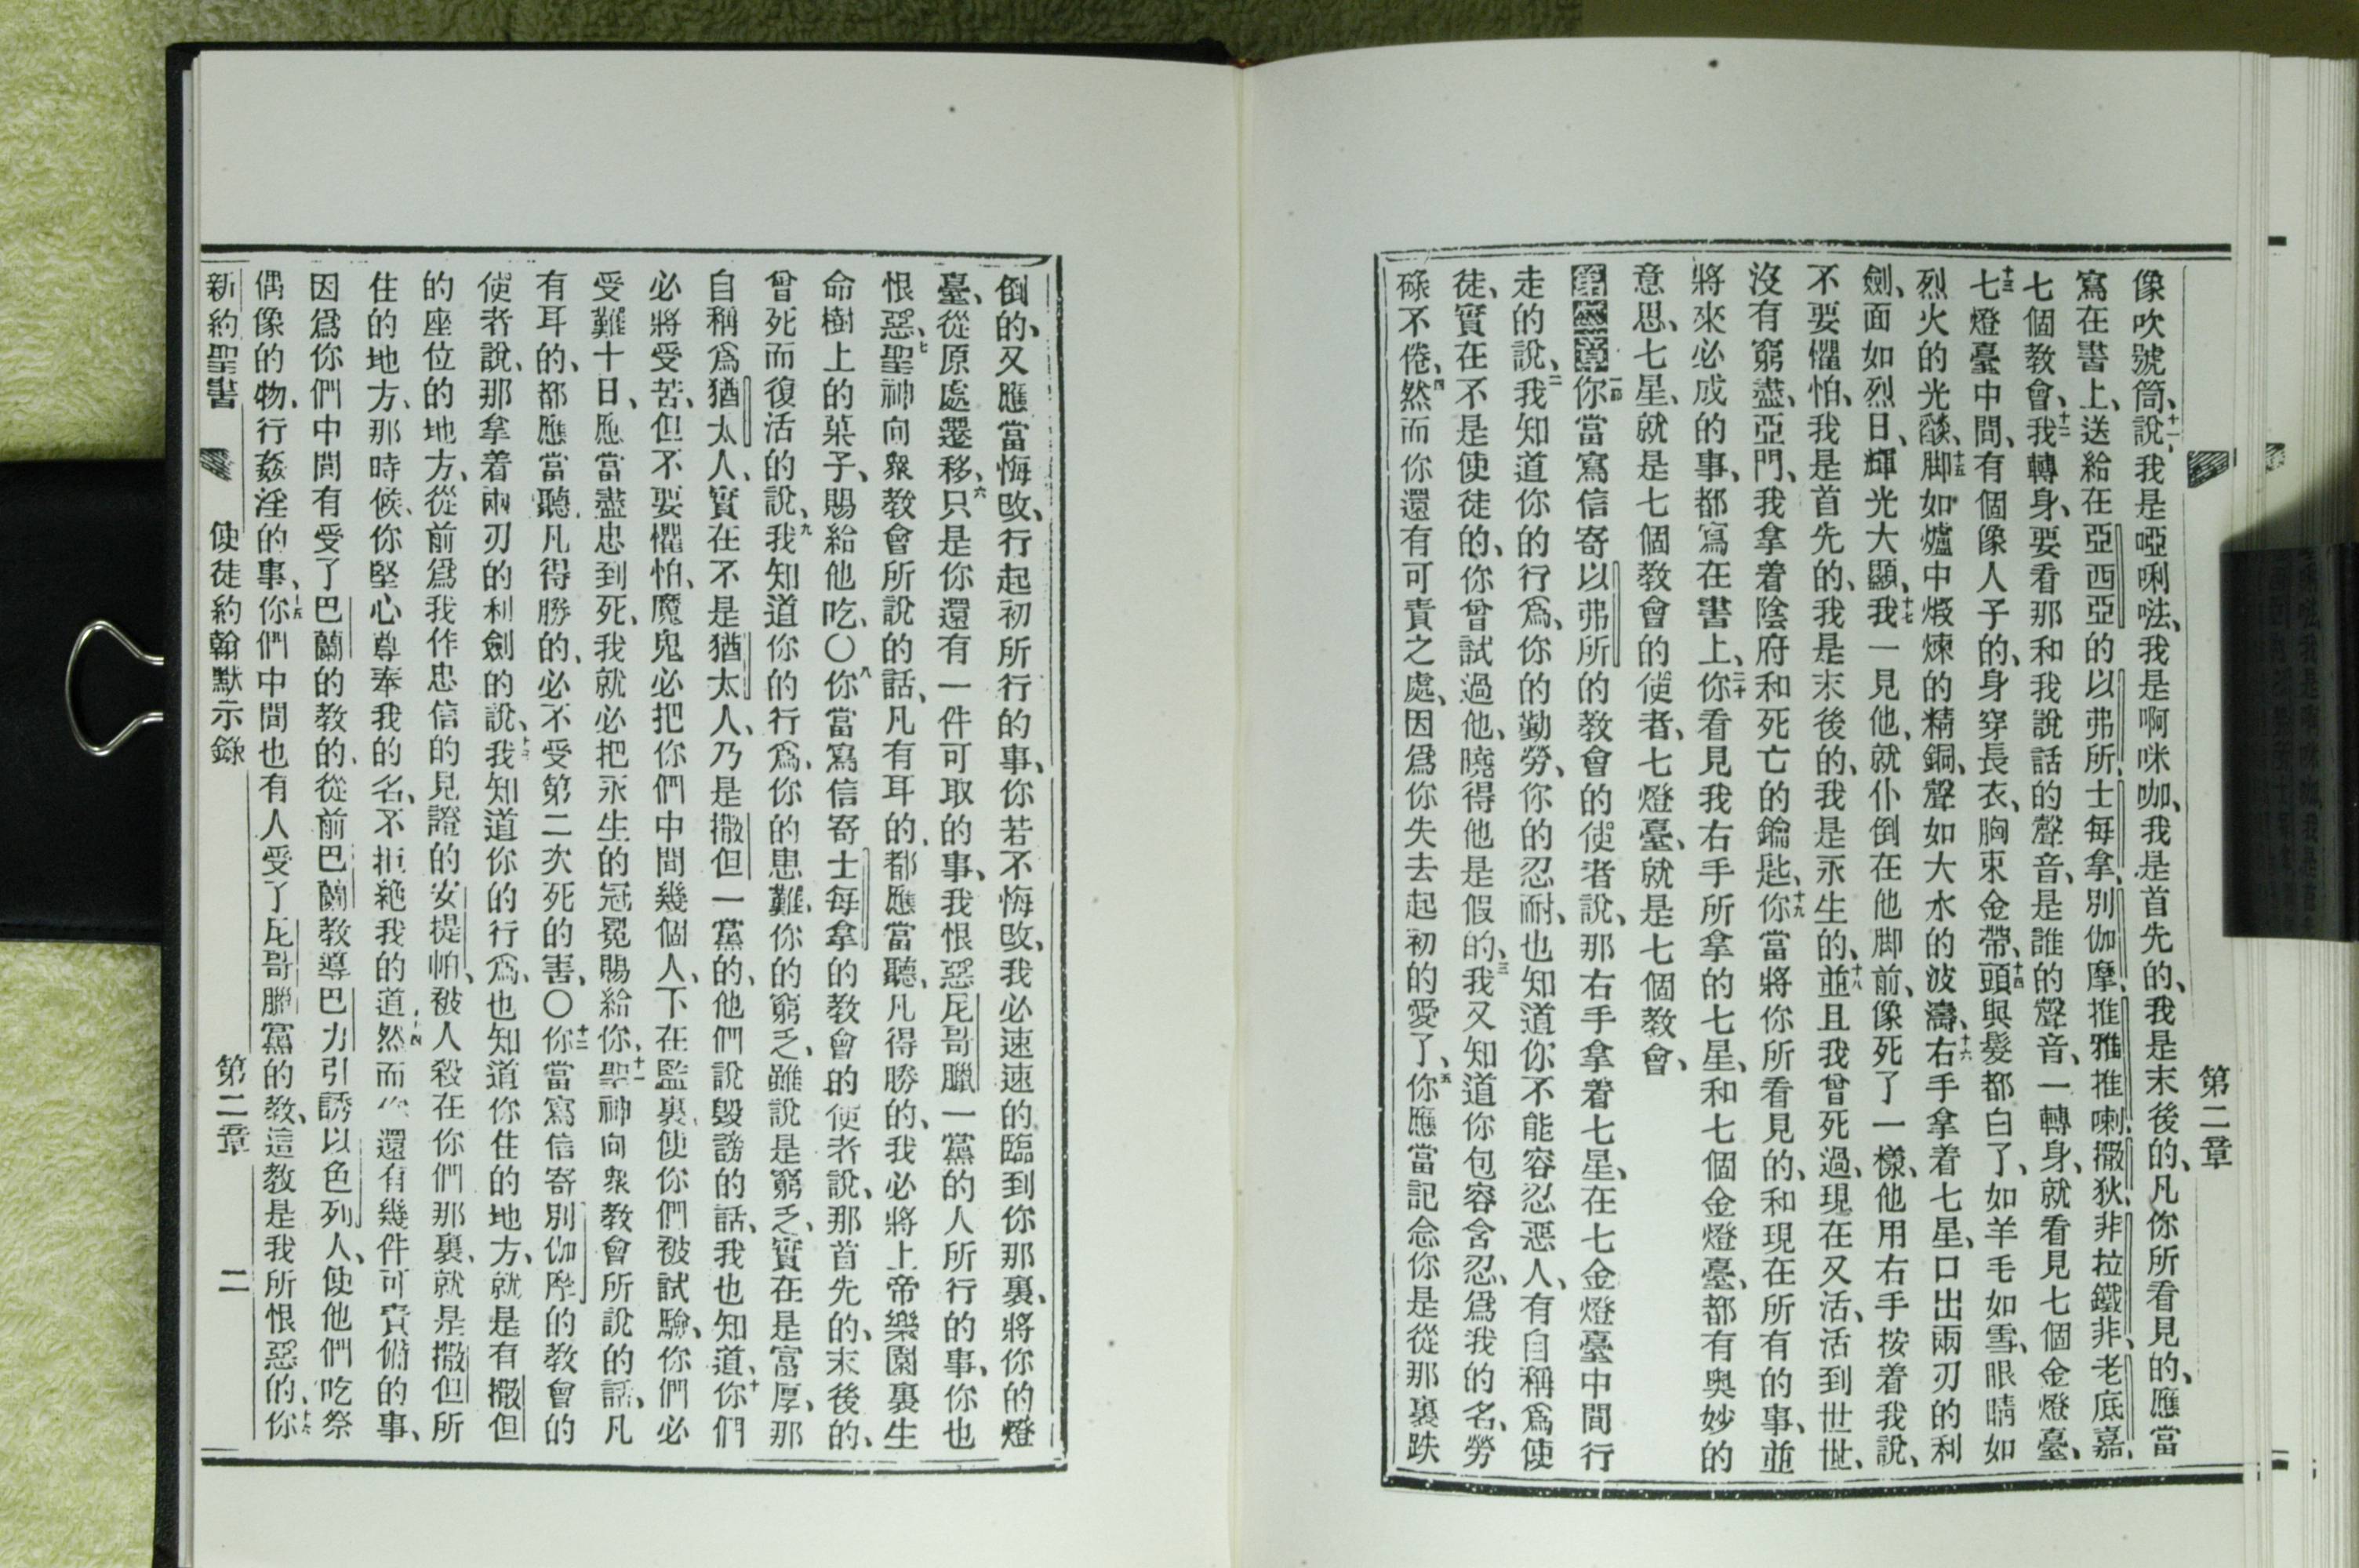 第二章
像吹號筒、十一說我是啞唎㕸、我是啊咪咖、我是首先的、我是末後的、凡你所看見的、應當
寫在書上、送給在亞西亞的以弗所、士每拿、別伽摩、推雅推喇、撒狄、非拉鐵非、老底嘉、
七個教會、十二我轉身、要看那和我說話的聲音、是誰的聲音、一轉身、就看見七個金燈臺、
十三七燈臺中間、有個像人子的、身穿長衣、胸束金帶、十四頭與髮都白了、如羊毛如雪、眼睛如
烈火的光燄、十五脚如爐中煅煉的精銅、聲如大水的波濤、十六右手拿着七星、口出兩刃的利
劍、面如烈日、輝光大顯、十七我一見他、就仆倒在他脚前、像死了一樣、他用右手按着我說、
不要懼怕、我是首先的、我是末後的、我是永生的、十八並且我曾死過、現在又活、活到世世、
沒有窮盡、亞門、我拿着陰府和死亡的鑰匙、十九你當將你所看見的、和現在所有的事、並
將來必成的事、都寫在書上、二十你看見我右手所拿的七星、和七個金燈臺、都有奧妙的
意思、七星、就是七個教會的使者、七燈臺、就是七個教會、
第二章一節你當寫信寄以弗所的教會的使者說、那右手拿着七星、在七金燈臺中間行
走的說、二我知道你的行爲、你的勤勞、你的忍耐、也知道你不能容忍惡人、有自稱爲使
徒、實在不是使徒的、你曾試過他、曉得他是假的、三我又知道你包容含忍、爲我的名、勞
碌不倦、四然而你還有可責之處、因爲你失去起初的愛了、五你應當記念你是從那裏跌
倒的、又應當悔改、行起初所行的事、你若不悔改、我必速速的臨到你那裏、將你的燈
臺、從原處遷移、六只是你還有一件可取的事、我恨惡尼哥臘一黨的人所行的事、你也
恨惡、七聖神向衆教會所說的話、凡有耳的、都應當聽、凡得勝的、我必將上帝樂園裏生
命樹上的菓子、賜給他吃、〇八你當寫信寄士每拿的教會的使者說、那首先的、末後的、
曾死而復活的說、九我知道你的行爲、你的患難、你的窮乏、雖說是窮乏、實在是富厚、那
自稱爲猶太人、實在不是猶太人、乃是撒但一黨的、他們說毀謗的話、我也知道、十你們
必將受苦、但不要懼怕、魔鬼必把你們中間幾個人、下在監裏、使你們被試驗、你們必
受難十日、應當盡忠到死、我就必把永生的冠冕賜給你、十一聖神向衆教會所說的話、凡
有耳的、都應當聽、凡得勝的、必不受第二次死的害、〇十二你當寫信寄別伽摩的教會的
使者說、那拿着兩刃的利劍的說、十三我知道你的行爲、也知道你住的地方、就是有撒但
的座位的地方、從前爲我作忠信的見證的安提帕、被人殺在你們那裏、就是撒但所
住的地方、那時候、你堅心尊奉我的名、不拒絕我的道、十四然而你還有幾件可責備的事、
因爲你們中間有受了巴蘭的教的、從前巴蘭教導巴力引誘以色列人、使他們吃祭
偶像的物、行姦淫的事、十五你們中間也有人受了尼哥臘黨的教、這教是我所恨惡的、十六你
新約聖書 使徒約翰默示錄 第二章 二